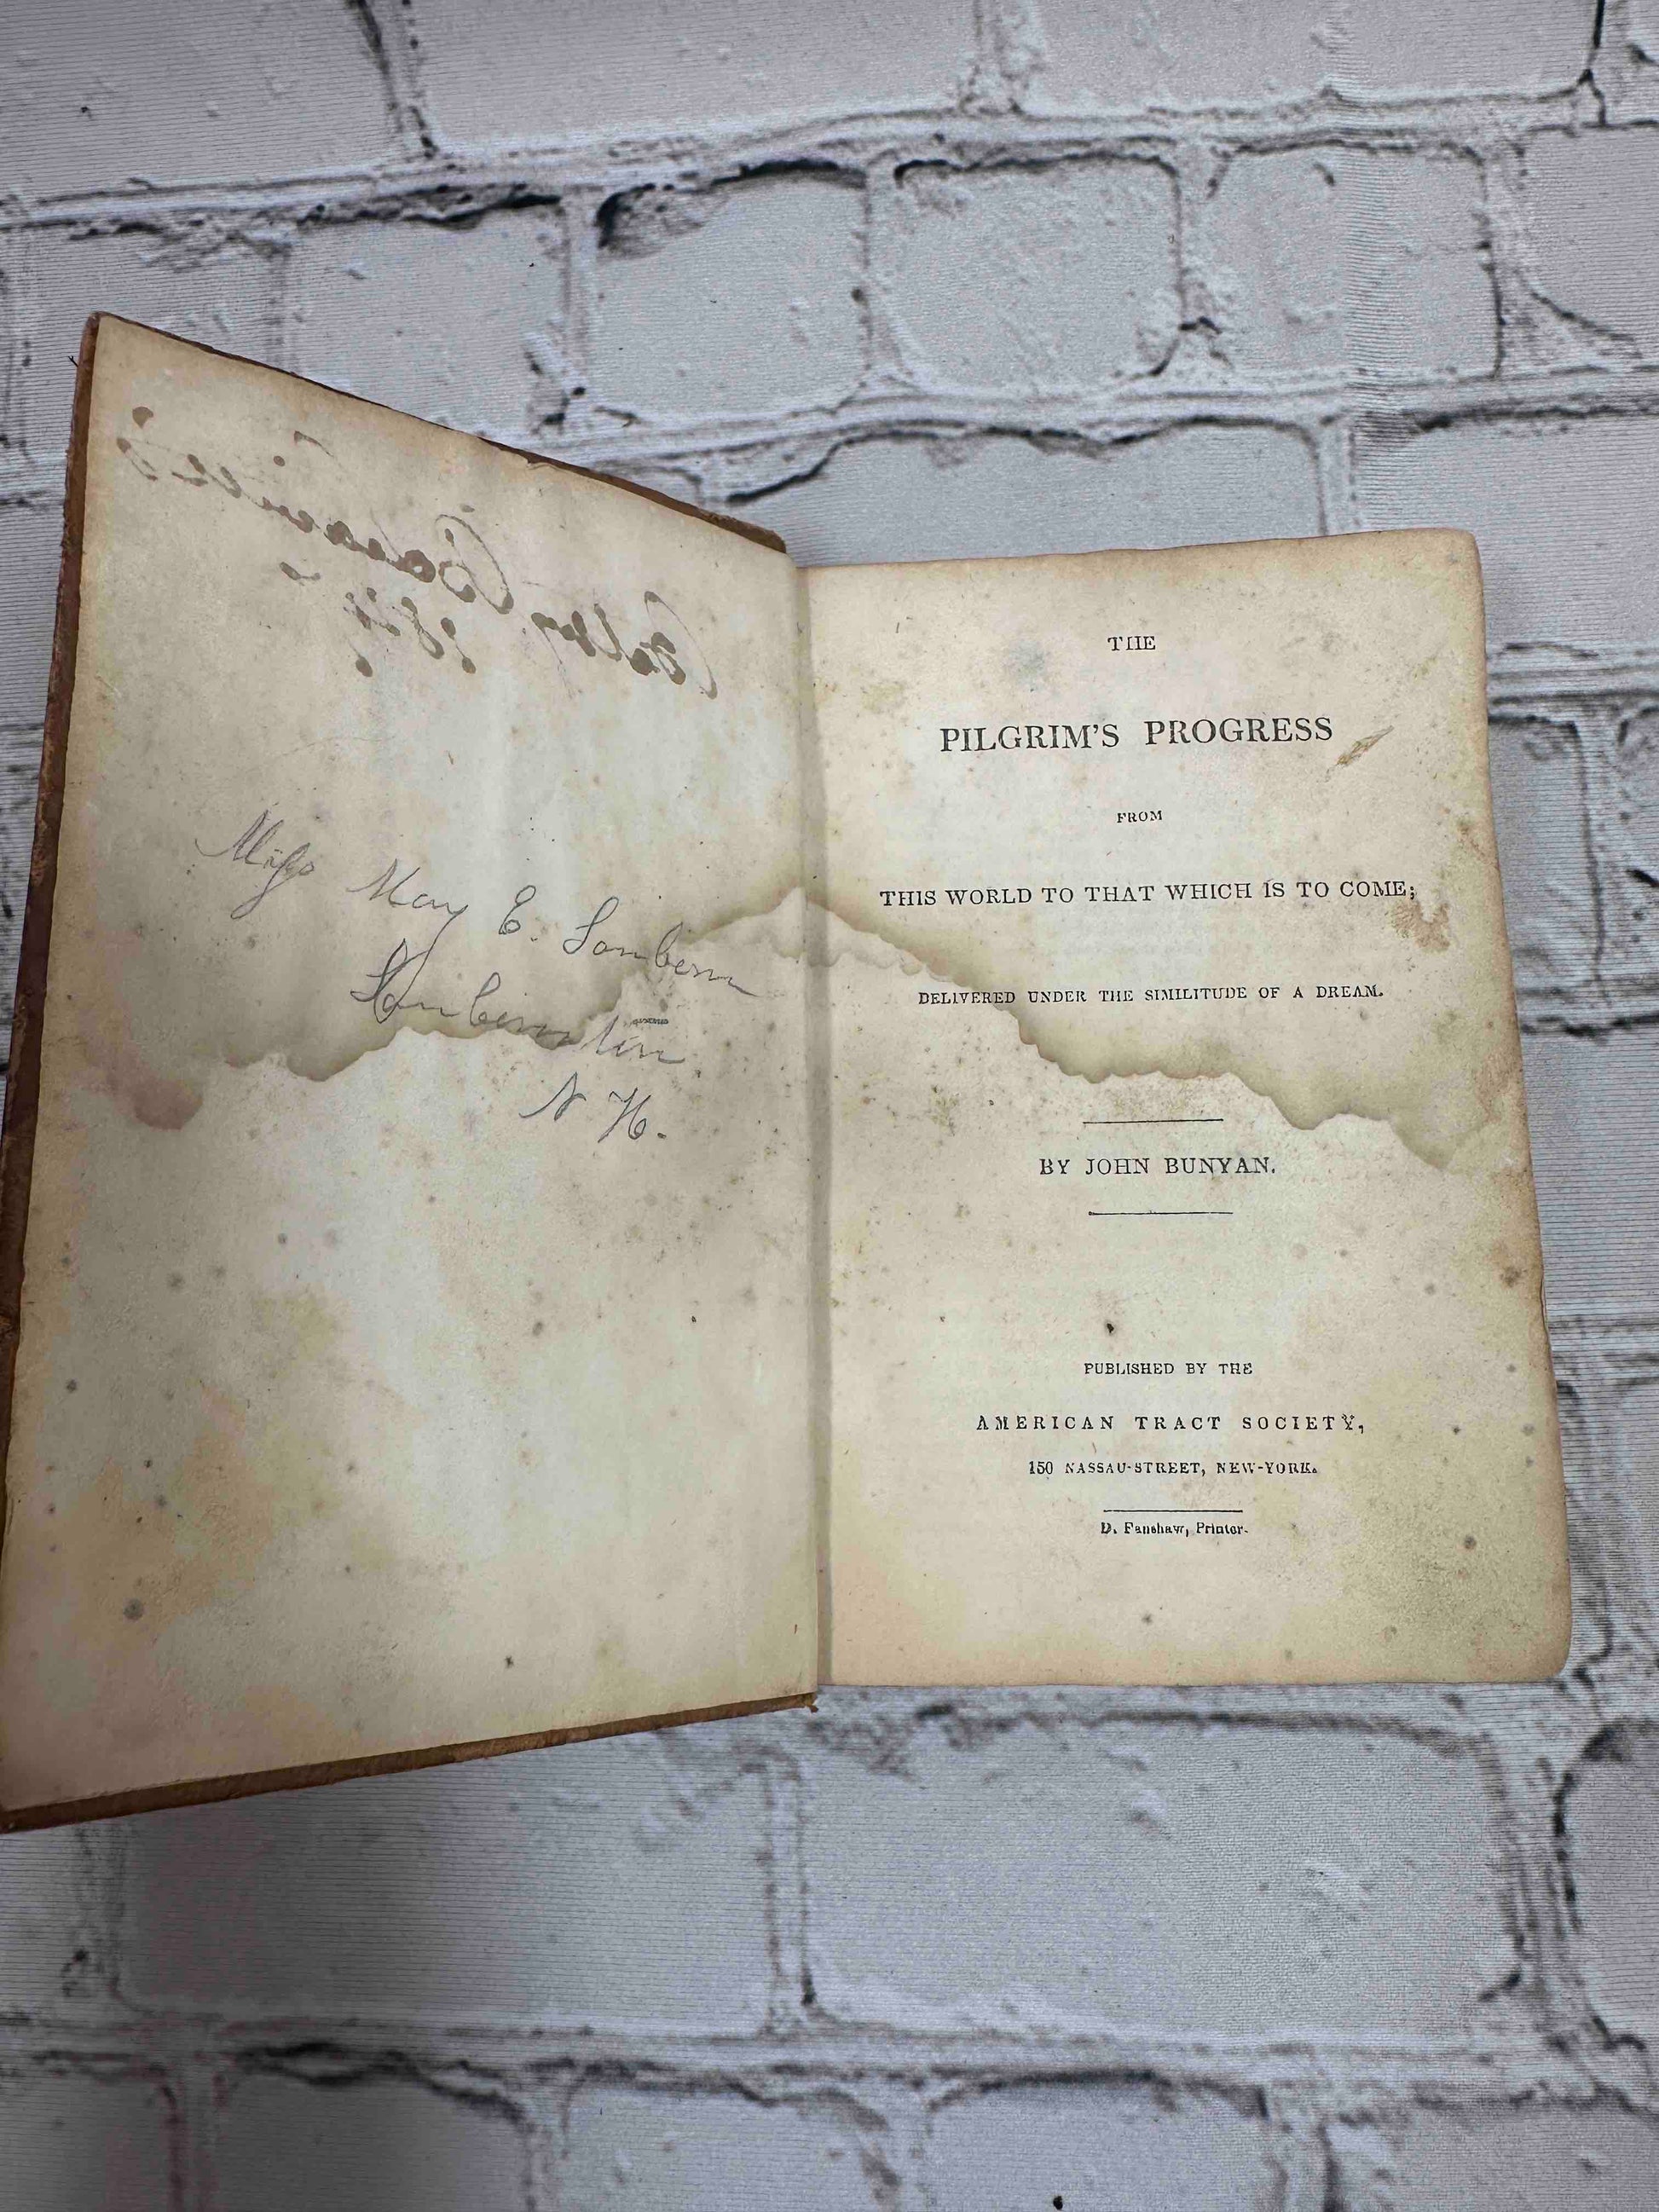 Miss May E. Sanborn
Sanbornton
N H.
THE
PILGRIM'S PROGRESS
FROM
THIS WORLD TO THAT WHICH IS TO COME;
DELIVERED UNDER THE SIMILITUDE OF A DREAM.
BY JOHN BUNYAN.
PUBLISHED BY THE
AMERICAN TRACT SOCIETY,
150 NASSAU-STREET, NEW-YORK.
D. Fanshaw, Printer.